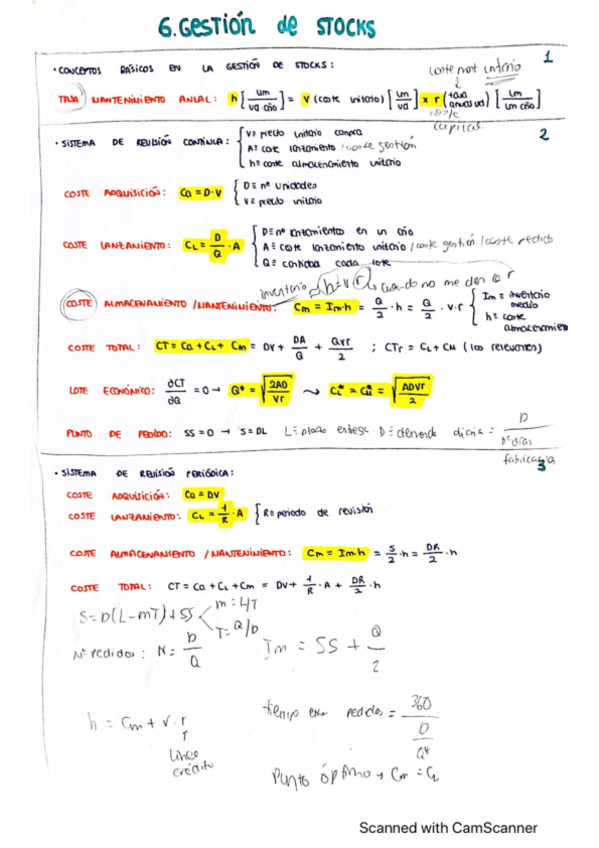 6. GESTIÓN DE STOCKS
1
· CONCEPTOS BÁSICOS EN LA GESTIÓN DE STOCKS:
TASA MANTENIMIENTO ANUAL: h [um / ud año] = v (coste unitario) [um / ud] x r (tasa anual ud) [um / um año]
capital
2
· SISTEMA DE REVISIÓN CONTINUA: { V= precio unitario compra
A= coste lanzamiento / coste gestión
h= coste almacenamiento unitario
COSTE ADQUISICIÓN: Ca = D·V { D= nº unidades
V= precio unitario
COSTE LANZAMIENTO: CL = D/Q · A { D= nº lanzamientos en un año
A= coste lanzamiento unitario / coste gestión / coste pedido
Q= cantidad cada lote
inventario h=v·r → cuando no me den la r
COSTE ALMACENAMIENTO / MANTENIMIENTO: Cm = Im·h = Q/2 · h = Q/2 · v·r { Im = inventario medio
h= coste almacenamien
COSTE TOTAL: CT = Ca + CL + Cm = DV + DA/Q + QVr/2 ; CTr = CL + CM (los relevantes)
LOTE ECONÓMICO: ∂CT/∂Q = 0 → Q* = √(2AD/Vr) ⇝ CL* = CM* = √(ADVr/2)
PUNTO DE PEDIDO: SS=0 → S=DL L= plazo entrega D= demanda diaria = D / nº días
3
· SISTEMA DE REVISIÓN PERIÓDICA:
COSTE ADQUISICIÓN: Ca = DV
COSTE LANZAMIENTO: CL = 1/R · A { R= periodo de revisión
COSTE ALMACENAMIENTO / MANTENIMIENTO: Cm = Im·h = S/2 · h = DR/2 · h
COSTE TOTAL: CT = Ca + CL + Cm = DV + 1/R · A + DR/2 · h
S = D(L-mT) + SS < m = L/T
T = Q/D
Nº Pedidos: N = D/Q
Im = SS + Q/2
h = Cm + v·r
↑
línea
crédito
tiempo entre pedidos = 360 / (D / Q*)
Punto óptimo → Cm = CL
Scanned with CamScanner